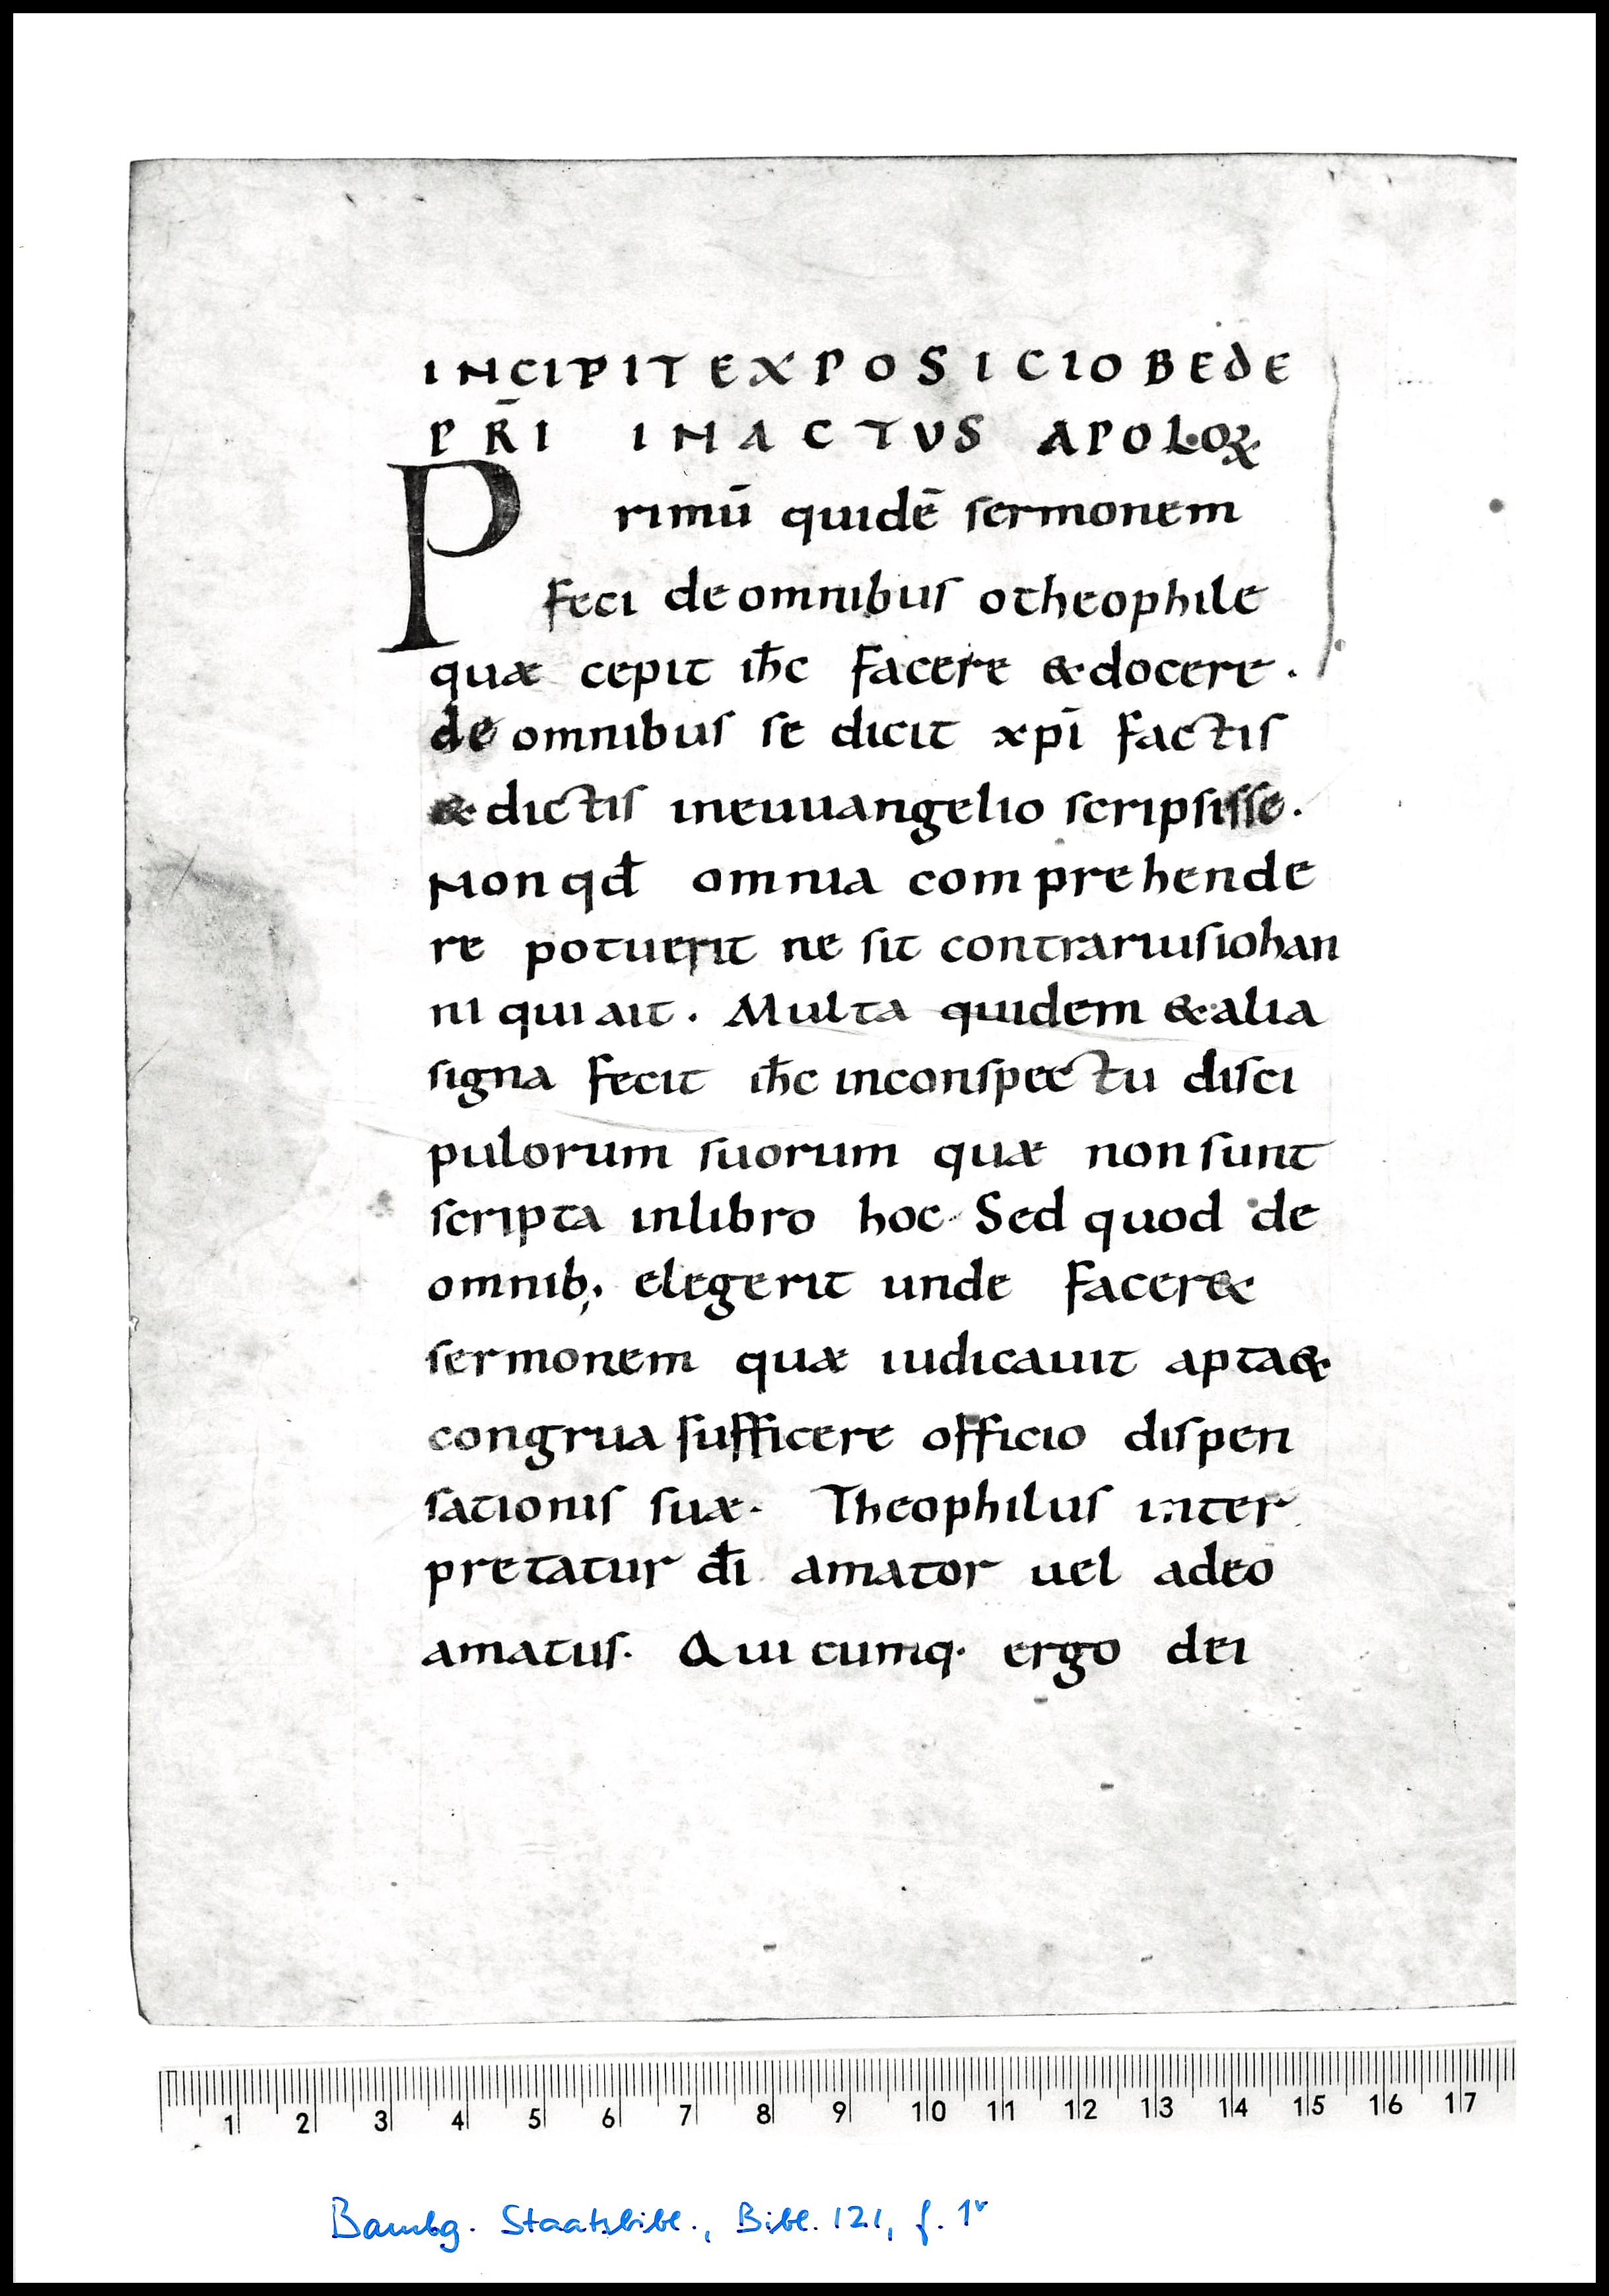 INCIPIT EXPOSICIO BEDE
PR̄I IN ACTUS APOLOꝜ
Primū quidē sermonem
feci de omnibus otheophile
quæ cepit ih̄c facere & docere.
de omnibus se dicit xp̄i factis
& dictis ineuuangelio scripsisse.
Non qd̄ omnia comprehende
re potuerit ne sit contrariusiohan
ni qui ait. Multa quidem & alia
signa fecit ih̄c inconspectu disci
pulorum suorum quæ non sunt
scripta inlibro hoc. Sed quod de
omnib; elegerit unde facer&
sermonem quæ iudicauit apta&
congrua sufficere officio dispen
sationis suæ. Theophilus inter
pretatur d̄i amator uel adeo
amatus. Quicumq. ergo dei
1 2 3 4 5 6 7 8 9 10 11 12 13 14 15 16 17
Bambg. Staatsbibl., Bibl. 121, f. 1r